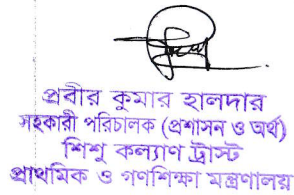 প্রবীর কুমার হালদার
সহকারী পরিচালক (প্রশাসন ও অর্থ)
শিশু কল্যাণ ট্রাস্ট
প্রাথমিক ও গণশিক্ষা মন্ত্রণালয়